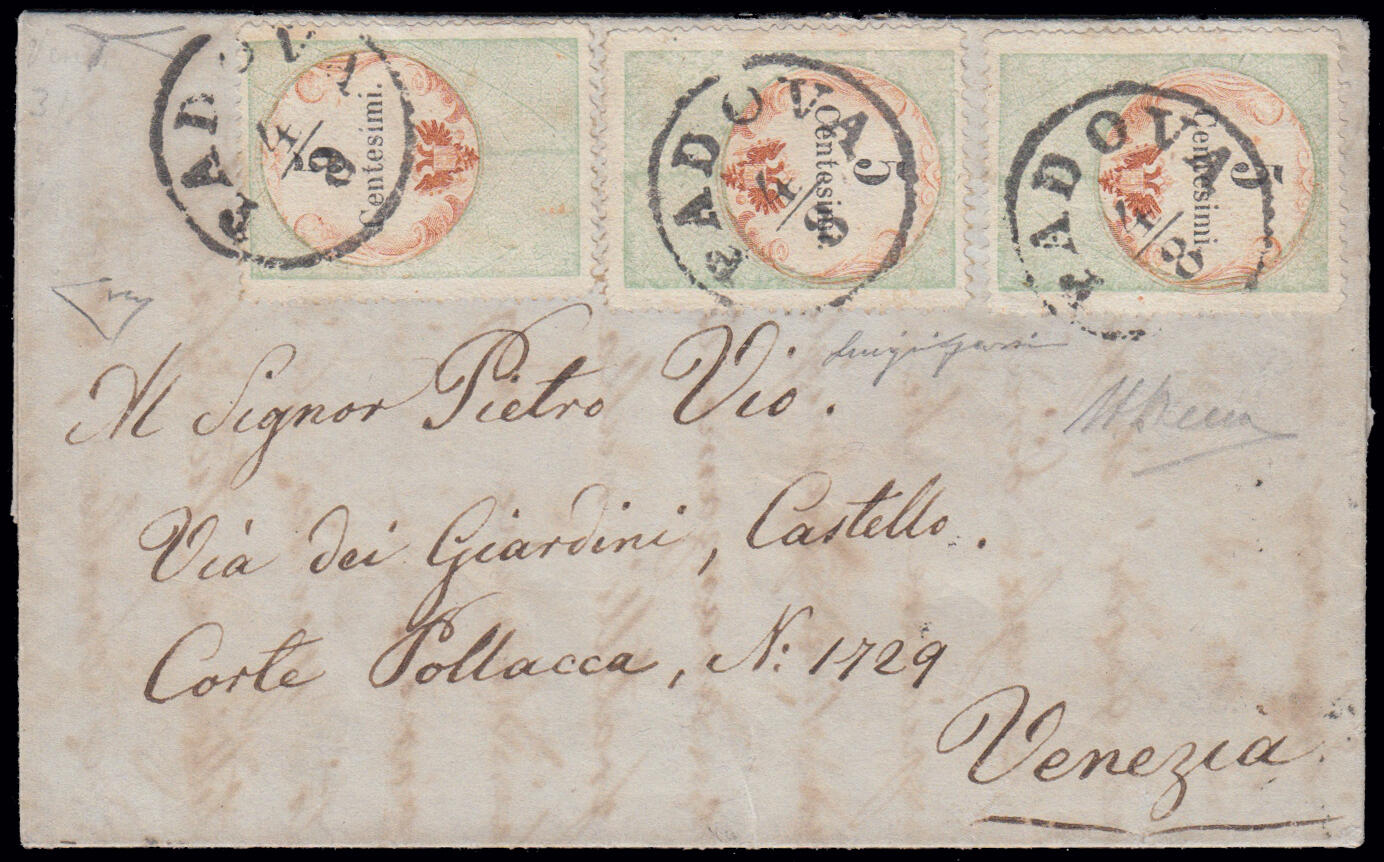 PADOVA
4/8
5
Centesimi.
PADOVA
4/8
5
Centesimi.
PADOVA
4/8
5
Centesimi.
Al Signor Pietro Vio.
Via dei Giardini, Castello.
Corte Pollacca, N: 1729
Venezia